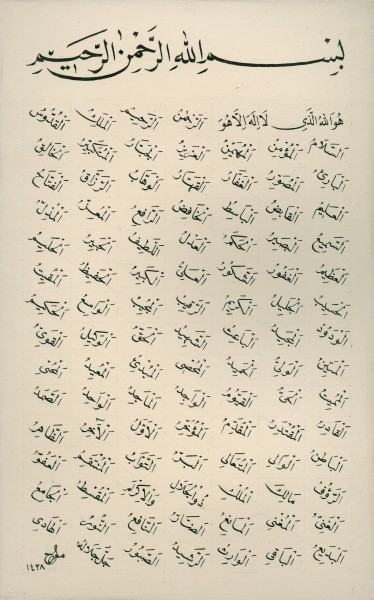 بِسْمِ اللهِ الرَّحْمٰنِ الرَّحِيمِ
هُوَ اللهُ الَّذِي لَا إِلَهَ إِلَّا هُوَ الرَّحْمٰنُ الرَّحِيمُ الْمَلِكُ الْقُدُّوسُ
السَّلَامُ الْمُؤْمِنُ الْمُهَيْمِنُ الْعَزِيزُ الْجَبَّارُ الْمُتَكَبِّرُ الْخَالِقُ
الْبَارِئُ الْمُصَوِّرُ الْغَفَّارُ الْقَهَّارُ الْوَهَّابُ الرَّزَّاقُ الْفَتَّاحُ
الْعَلِيمُ الْقَابِضُ الْبَاسِطُ الْخَافِضُ الرَّافِعُ الْمُعِزُّ الْمُذِلُّ
السَّمِيعُ الْبَصِيرُ الْحَكَمُ الْعَدْلُ اللَّطِيفُ الْخَبِيرُ الْحَلِيمُ
الْعَظِيمُ الْغَفُورُ الشَّكُورُ الْعَلِيُّ الْكَبِيرُ الْحَفِيظُ الْمُقِيتُ
الْحَسِيبُ الْجَلِيلُ الْكَرِيمُ الرَّقِيبُ الْمُجِيبُ الْوَاسِعُ الْحَكِيمُ
الْوَدُودُ الْمَجِيدُ الْبَاعِثُ الشَّهِيدُ الْحَقُّ الْوَكِيلُ الْقَوِيُّ
الْمَتِينُ الْوَلِيُّ الْحَمِيدُ الْمُحْصِي الْمُبْدِئُ الْمُعِيدُ الْمُحْيِي
الْمُمِيتُ الْحَيُّ الْقَيُّومُ الْوَاجِدُ الْمَاجِدُ الْوَاحِدُ الصَّمَدُ
الْقَادِرُ الْمُقْتَدِرُ الْمُقَدِّمُ الْمُؤَخِّرُ الْأَوَّلُ الْآخِرُ الظَّاهِرُ
الْبَاطِنُ الْوَالِي الْمُتَعَالِي الْبَرُّ التَّوَّابُ الْمُنْتَقِمُ الْعَفُوُّ
الرَّؤُوفُ مَالِكُ الْمُلْكِ ذُو الْجَلَالِ وَالْإِكْرَامِ الْمُقْسِطُ الْجَامِعُ
الْغَنِيُّ الْمُغْنِي الْمَانِعُ الضَّارُّ النَّافِعُ النُّورُ الْهَادِي
الْبَدِيعُ الْبَاقِي الْوَارِثُ الرَّشِيدُ الصَّبُورُ جَلَّ جَلَالُهُ
١٤٢٨